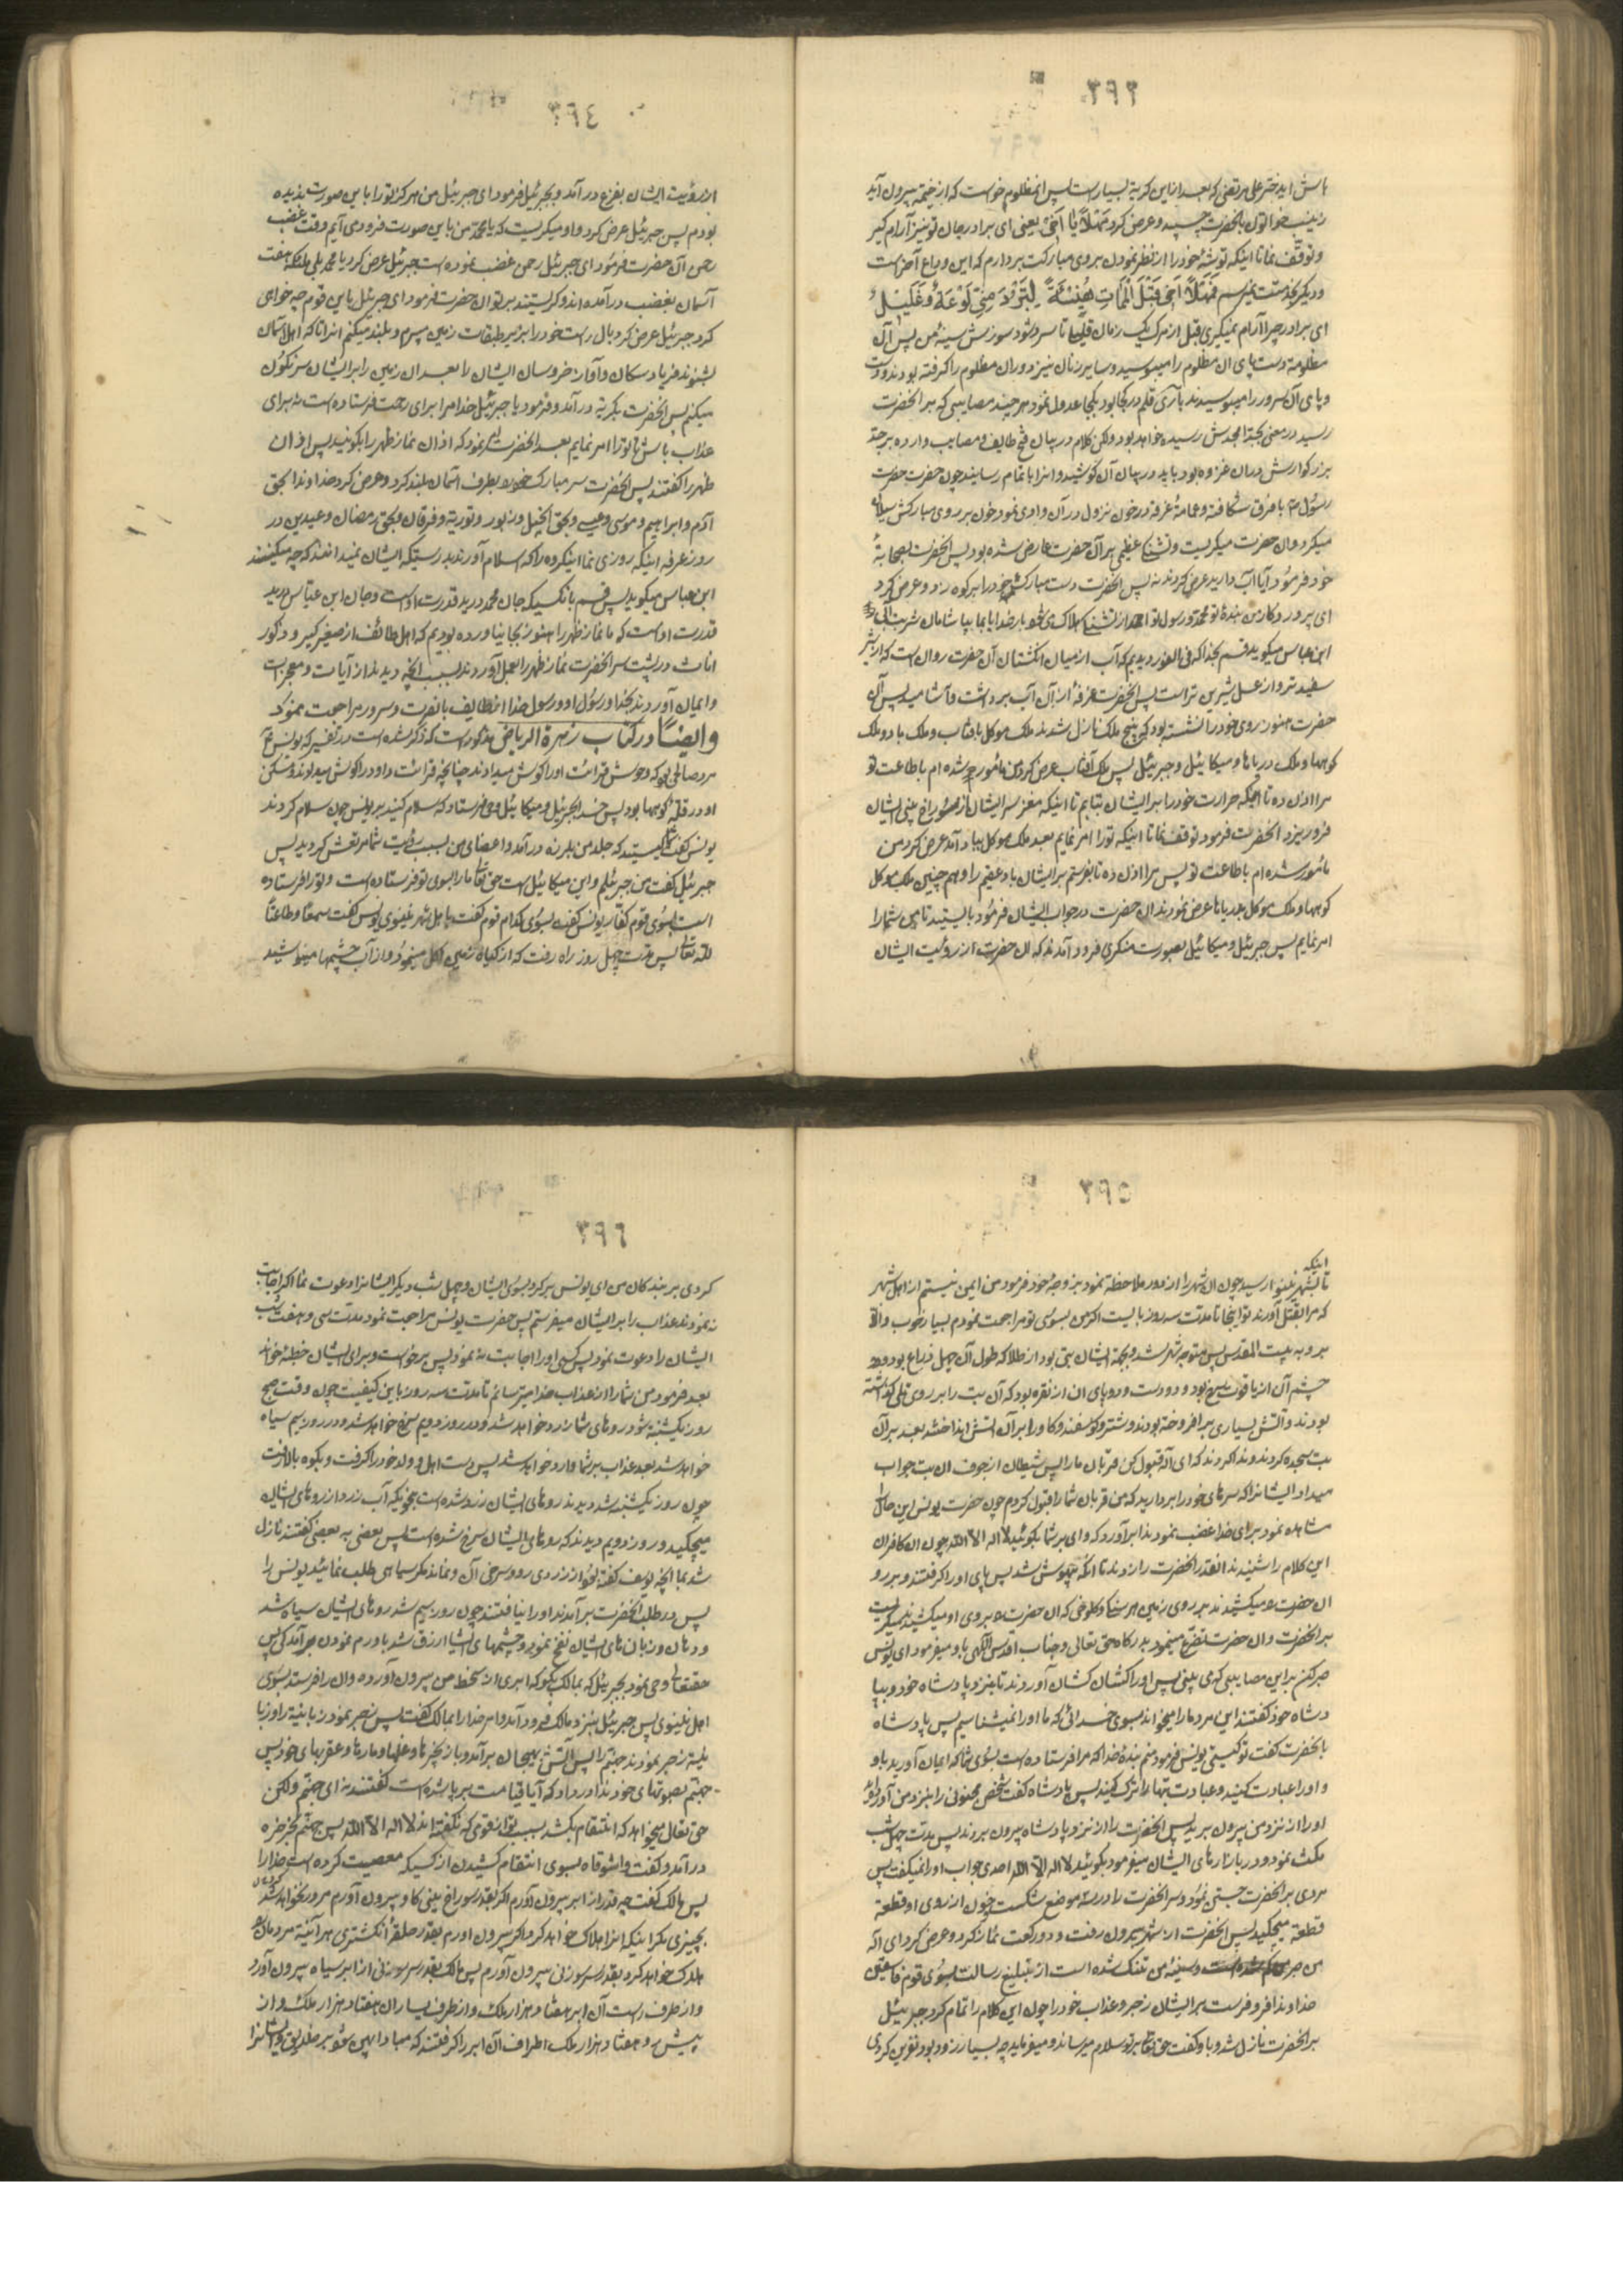 ٣٩٣
باش ای دختر علی مرتضی که بعد از این گریه بسیار است پس آن مظلوم خواست که از خیمه بیرون آید
زینب خواتون بآنحضرت چسپید و عرض کرد مَهْلاً یا اَخی یعنی ای برادر جان تو نیز آرام گیر
و توقّف نما تا اینکه توشهٔ خود را از نظر نمودن بروی مبارکت بردارم که این وداع آخر است
و دیگر بخدمتت نمیرسم فَمَهْلاً اَخی قَبْلَ الْمَمٰاتِ هُنَیْئَةً لِتَبْرُدَ مِنّی لَوْعَةٌ وَ غَلیلٌ
ای برادر چرا آرام نمیگیری قبل از مرگ یک زمان قلیلی تا سرد شود سوزش سینهٔ من پس آن
مظلومه دست پای ان مظلوم را میبوسید و سایر زنان نیز دوران مظلوم را گرفته بودند و دست
و پای آن سرور را میبوسیدند بآری قلم در کجا بود بکجا عدول نمود هر چند مصایبی که بر آنحضرت
رسید در معنی بجد امجدش رسیده خواهد بود ولکن کلام در بیان فتح طایف و مصایب وارده بر جد
بزرگوارش در ان غزوه بود باید در بیان آن کوشید و انرا باتمام رسانید چون حضرت حضرت
رسول ص با فرق شکافته و عمامهٔ غرقه در خون نزول در آن وادی نمود خون بر روی مبارکش سیلان
میکرد و ان حضرت میگریست و تشنگی عظیمی بر آن حضرت عارض شده بود پس آنحضرت بصحابهٔ
خود فرمود آیا آب دارید عرض کردند نه پس آنحضرت دست مبارک خود را بر کوه زد و عرض کرد
ای پروردکار من بندهٔ تو محمد و رسول تو احمد از تشنگی هلاک می شود بار خدایا بما بیاشامان شربت آبی
ابن عباس میکوید قسم بخدا که فی الفور دیدیم که آب از میان انکشتان آن حضرت روان است که از شیر
سفید تر و از عسل شیرین تر است پس آنحضرت غرفهٔ از آن آب برداشت و آشامید پس آن
حضرت هنوز روی خود را نشسته بود که پنج ملک نازل شدند ملک موکل بآفتاب و ملک باد و ملک
کوهها و ملک دریاها و میکائیل و جبرئیل پس ملک آفتاب عرض کرد من مأمور شده ام باطاعت تو
مرا اذن ده تا اینکه حرارت خود را بر ایشان بتابم تا اینکه مغز سر ایشان از سوراخ بینی ایشان
فرو ریزد آنحضرت فرمود توقف نما تا اینکه تورا امر نمایم بعد ملک موکل بباد آمد عرض کرد من
مأمور شده ام باطاعت تو پس مرا اذن ده تا بفرستم بر ایشان باد عقیم را و هم چنین ملک موکل
کوهها و ملک موکل بدریاها عرض نمودند ان حضرت در جواب ایشان فرمود بایستید تا من شما را
امر نمایم پس جبرئیل و میکائیل بصورت منکری فرود آمدند که ان حضرت از رؤیت ایشان
٣٩٤
از رؤیت ایشان بفزع در آمد و بجبرئیل فرمود ای جبرئیل من هرگز تورا باین صورت ندیده
بودم پس جبرئیل عرض کرد و او میکریست که یا محمد من باین صورت فرود می آیم وقت غضب
رحمن آن حضرت فرمود ای جبرئیل رحمن غضب نموده است جبرئیل عرض کرد یا محمد بلی ملئکه هفت
آسمان بغضب در آمده اند و کریستند بر تو ان حضرت فرمود ای جبرئیل باین قوم چه خواهی
کرد جبرئیل عرض کرد بال راست خود را بزیر طبقات زمین میبرم و بلند میکنم انرا تا که اهل آسمان
بشنوند فریاد سکان و آواز خروسان ایشان را بعد ان زمین را بر ایشان سرنکون
میکنم پس آنحضرت بکریه در آمد و فرمود یا جبرئیل خدا مرا برای رحمت فرستاده است نه برای
عذاب باش تا تورا امر نمایم بعد آنحضرت امر نمود که اذان نماز ظهر را بکوئید پس اذان
ظهر را گفتند پس آنحضرت سر مبارک خود بطرف آسمان بلند کرد و عرض کرد خداوندا بحق
آدم و ابراهیم و موسی و عیسی و بحق انجیل و زبور و توریة و فرقان و بحق رمضان و عیدین در
روز عرفه اینکه روزی نما اینکروه را که اسلام آورند بدرستیکه ایشان نمیدانند که چه میکنند
ابن عباس میکوید پس قسم بانکسیکه جان محمد در ید قدرت اوست و جان ابن عباس در ید
قدرت اوست که ما نماز ظهر را هنوز بجا نیاورده بودیم که اهل طائف از صغیر کبیر و ذکور
اناث در پشت سر آنحضرت نماز ظهر را بعمل آوردند بسبب آنچه دیدند از آیات و معجزات
و ایمان آوردند بخدا و رسول او و رسول خدا از طایف بانصرت و سرور مراجعت نمود
وایضًا در کتاب زهرة الریاض مذکور است که ذکر شده است در تفسیر که یونس ع
مرد صالحی بود که وحوش قرائت او را کوش میدادند چنانچه قرائت داود را کوش میدادند و مسکن
او در قلّهٔ کوهها بود پس خدا جبرئیل و میکائیل وحی فرستاد که سلام کنید بر یونس چون سلام کردند
یونس گفت شما کیستید که جلد من بلرزه در آمد و اعضای من بسبب رؤیت شما مرتعش کردید پس
جبرئیل گفت من جبرئیلم و این میکائیل است حق تعالی ما را بسوی تو فرستاده است و تورا فرستاده
است بسوی قوم کفار یونس گفت بسوی کدام قوم گفت باهل شهر نینوی یونس گفت سمعًا و طاعتًا
لله تعالی پس مدت چهل روز راه رفت که از کیاه زمین اکل مینمود و از آب چشمها مینوشید
٣٩٥
اینکه
تا بشهر نینوا رسید چون ان شهر را از دور ملاحظه نمود بزوجهٔ خود فرمود من ایمن نیستم از اهل شهر
که مرا بقتل آورند تو اینجا تا مدت سه روز بایست اکر من بسوی تو مراجعت نمودم بسیار خوب والّا
برو به بیت المقدس پس متوجه شهر شد و بجهة ایشان بتی بود از طلا که طول آن چهل ذراع بود و دو
چشم آن از یاقوت سرخ بود و دو دست و دو پای ان از نقره بود که آن بت را بر روی تلی گذاشته
بودند و آتش بسیاری بر افروخته بودند و شتر و کوسفند و کاو را بر آن آتش انداختند بعد بر آن
بت سجده کردند و ندا کردند که ای آله قبول کن قربان ما را پس شیطان از جوف ان بت جواب
میداد ایشانرا که سرهای خود را بردارید که من قربان شما را قبول کردم چون حضرت یونس این حال
مشاهده نمود برای خدا غضب نمود ندا بر آورد که وای بر شما بکوئید لا اله الا الله چون ان کافران
این کلام را شنیدند انقدر آنحضرت را زدند تا انکه بیهوش شد پس پای او را گرفتند و بر رو
ان حضرت را میکشیدند بر روی زمین هر سنک و کلوخی که ان حضرت را بروی او میکشیدند میکریست
بر آنحضرت و ان حضرت تضرع مینمود بدرکاه حق تعالی و جناب اقدس الهی باو میفرمود ای یونس
صبر کن بر این مصایبی که می بینی پس او را کشان کشان آوردند تا بنزد پادشاه خود و بپا
دشاه خود گفتند این مرد ما را میخواند بسوی خدائی که ما او را نمیشناسیم پس پادشاه
بآنحضرت گفت تو کیستی یونس فرمود منم بندهٔ خدا که مرا فرستاده است بسوی شما که ایمان آورید باو
و او را عبادت کنید و عبادت بتها را ترک کنید پس پادشاه گفت شخص مجنونی را بنزد من آوردید
او را از نزد من بیرون برید پس آنحضرت را از نزد پادشاه بیرون بردند پس مدت چهل شب
مکث نمود و در بازارهای ایشان میفرمود بکوئید لا اله الا الله احدی جواب او را نمیگفت پس
مردی بر آنحضرت جستی نمود و سر آنحضرت را در سه موضع شکست خون از روی او قطعه
قطعه میچکید پس آنحضرت از شهر بیرون رفت و دو رکعت نماز کرد و عرض کرد ای اله
من صبر من کم شده است و سینهٔ من تنک شده است از تبلیغ رسالت بسوی قوم فاسقین
خداوندا فرو فرست بر ایشان زجر و عذاب خود را چون این کلام را تمام کرد جبرئیل
بر آنحضرت نازل شد و باو گفت حق تعالی بر تو سلام میرساند و میفرماید چه بسیار زود بود نفرین کردی
٣٩٦
کردی بر بندکان من ای یونس برکرد بسوی ایشان و چهل شب دیکر ایشانرا دعوت نما اکر اجابت
نه نمودند عذاب را بر ایشان میفرستم پس حضرت یونس مراجعت نمود مدت سی و هفت شب
ایشان را دعوت نمود پس کسی او را اجابت نه نمود پس برخواست و برای ایشان خطبهٔ خواند
بعد فرمود من شما را از عذاب خدا میترسانم تا مدت سه روز باین کیفیت چون وقت صبح
روز یکشنبه شود روهای شما زرد خواهد شد و در روز دویم سرخ خواهد شد و در روز سیم سیاه
خواهد شد بعد عذاب بر شما وارد خواهد شد پس دست اهل و ولد خود را گرفت و بکوه بالا رفت
چون روز یکشنبه شد دیدند روهای ایشان زرد شده است بنحویکه آب زرد از روهای ایشان
میچکید و روز دویم دیدند که روهای ایشان سرخ شده است پس بعضی به بعضی گفتند نازل
شد بما آنچه یونس گفته بود از زردی رو و سرخی آن و نماند مکر سیاهی طلب نمائید یونس را
پس در طلب آنحضرت بر آمدند او را نیافتند چون روز سیم شد روهای ایشان سیاه شد
و دهان و زبان های ایشان نفخ نمود و چشمهای ایشان ازرق شد باورم نمودن بر آمدکی پس
حقتعالی وحی نمود بجبرئیل که بمالک بکو که ابری از سخط من بیرون آورده و ان را فرستد بسوی
اهل نینوی پس جبرئیل بنزد مالک فرود آمد و امر خدا را بمالک گفت پس زجر نمود زبانیة را و زبا
نیه زجر نمودند جهنم را پس آتش بهیجان بر آمد و با زنجیرها و غلها و مارها و عقربهای خود پس
جهنم بصوتهای خود ندا در داد که آیا قیامت بر پا شده است گفتند نه ای جهنم ولکن
حق تعالی میخواهد که انتقام بکشد بسبب تو از قومی که نکفته اند لا اله الا الله پس جهنم بخرخره
در آمد و گفت واشوقاه بسوی انتقام کشیدن از کسیکه معصیت کرده است خدا را
پس مالک گفت چقدر از ابر بیرون آورم اکر بقدر سوراخ بینی کاو بیرون آورم مرور نخواهد کرد
بچیزی مکر اینکه انرا هلاک خواهد کرد و اکر بیرون اورم بقدر حلقهٔ انکشتری هر آئینه مردمان را
هلاک خواهد کرد بقدر سر سوزنی بیرون آورم پس مالک بقدر سر سوزنی از ابر سیاه بیرون آورد
و از طرف راست آن ابر هفتاد هزار ملک و از طرف یسار ان هفتاد هزار ملک و از
پیش رو هفتاد هزار ملک اطراف آن ابر را گرفتند که مبادا پهن شود بر خلایق و ایشانرا